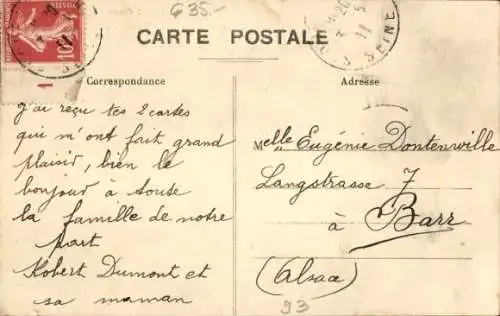 635.-
CARTE POSTALE
Correspondance
Adresse
10
1
SEINE
11
J'ai reçu tes 2 cartes
qui m'ont fait grand
plaisir, bien le
bonjour a toute
la famille de notre
part
Robert Dumont et
sa maman
Melle Eugénie Dontenville
Langstrasse 7
à Barr
(Alsace)
93